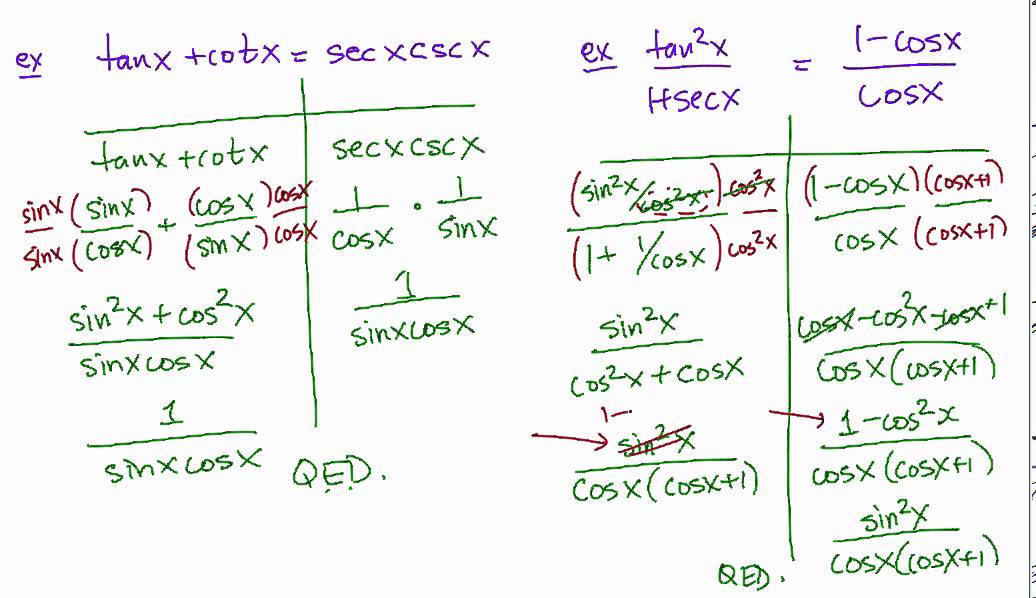 ex tanx + cotx = secxcscx
tanx + cotx | secxcscx
sinx/sinx (sinx)/(cosx) + (cosx)/(sinx) cosx/cosx | 1/cosx · 1/sinx
(sin²x + cos²x)/(sinxcosx) | 1/(sinxcosx)
1/(sinxcosx)
QED.
ex tan²x/(1+secx) = (1-cosx)/cosx
(sin²x/cos²x) cos²x / (1 + 1/cosx) cos²x | (1-cosx)(cosx+1) / cosx (cosx+1)
sin²x/(cos²x + cosx) | (cosx - cos²x - cosx + 1)/(cosx(cosx+1))
1-
→ sin²x/(cosx(cosx+1)) | → (1-cos²x)/(cosx(cosx+1))
sin²x/(cosx(cosx+1))
QED.